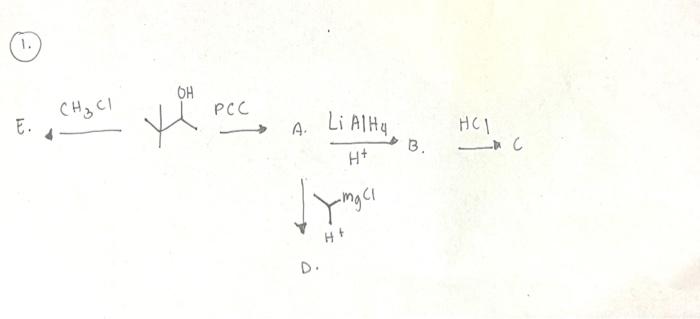 1.
OH
E. CH3Cl PCC A. LiAlH4 B. HCl C
H+
mgCl
H+
D.